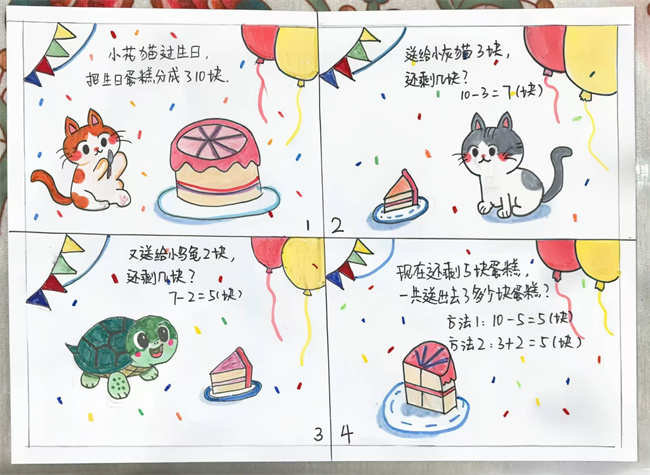 小花猫过生日，
把生日蛋糕分成了10块.
1
送给小灰猫3块，
还剩几块？
10-3=7(块)
2
又送给小乌龟2块，
还剩几块？
7-2=5(块)
3
现在还剩5块蛋糕，
一共送出去了多少块蛋糕？
方法1：10-5=5(块)
方法2：3+2=5(块)
4